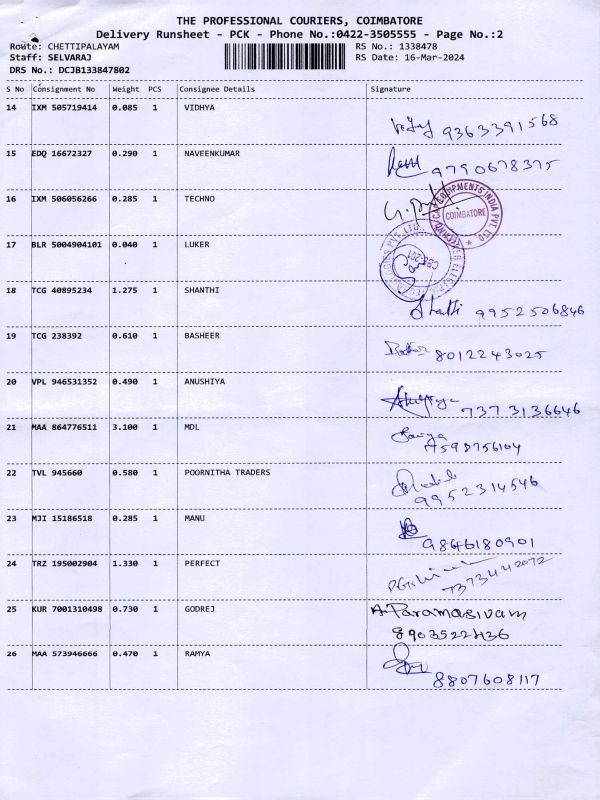 THE PROFESSIONAL COURIERS, COIMBATORE
Delivery Runsheet - PCK - Phone No.:0422-3505555 - Page No.:2
Route: CHETTIPALAYAM RS No.: 1338478
Staff: SELVARAJ RS Date: 16-Mar-2024
DRS No.: DCJB133847802
S No Consignment No Weight PCS Consignee Details Signature
14 IXM 505719414 0.085 1 VIDHYA
9363391568
15 EDQ 16672327 0.290 1 NAVEENKUMAR
9790678375
16 IXM 506056266 0.285 1 TECHNO
EQUIPMENTS INDIA PVT. LTD.
COIMBATORE
17 BLR 5004904101 0.040 1 LUKER
18 TCG 40895234 1.275 1 SHANTHI
Shanthi 9952506846
19 TCG 238392 0.610 1 BASHEER
8012243025
20 VPL 946531352 0.490 1 ANUSHIYA
7373136646
21 MAA 864776511 3.100 1 MDL
22 TVL 945660 0.580 1 POORNITHA TRADERS
9952314546
23 MJI 15186518 0.285 1 MANU
9846180901
24 TRZ 195002904 1.330 1 PERFECT
7373442072
25 KUR 7001310498 0.730 1 GODREJ
A. Paramasivam
8903522436
26 MAA 573946666 0.470 1 RAMYA
8807608117